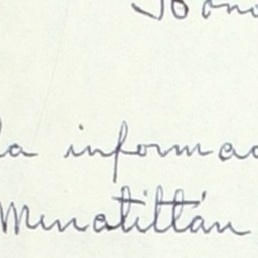 la informac
Minatitlán